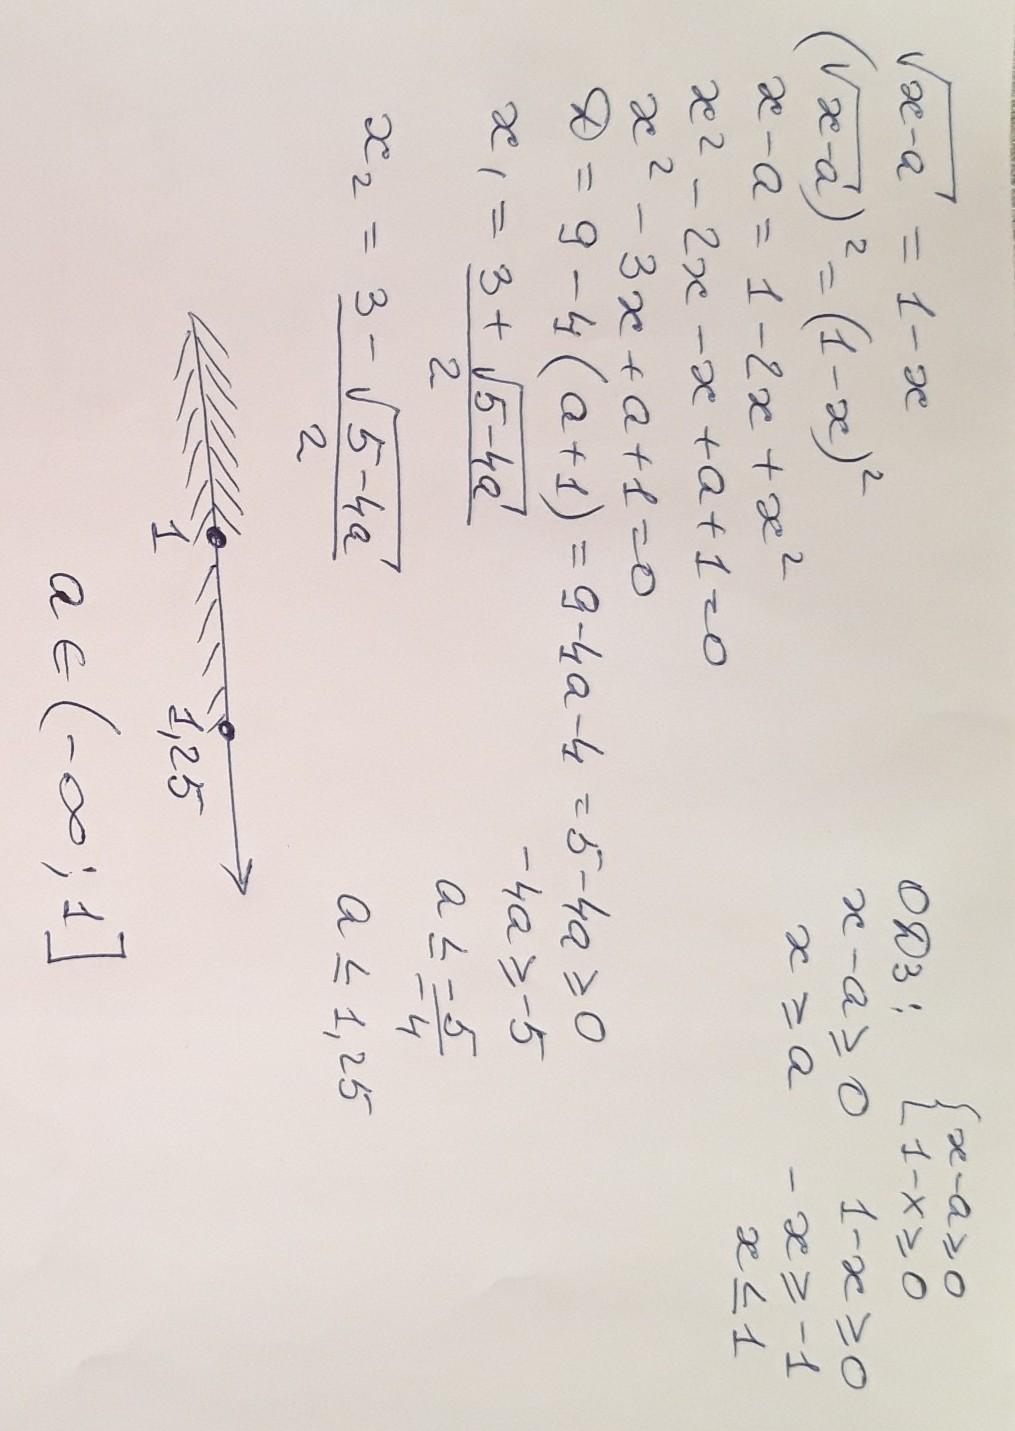 √x-a = 1-x
(√x-a)² = (1-x)²
x-a = 1-2x+x²
x²-2x-x+a+1=0
x²-3x+a+1=0
D = 9-4(a+1) = 9-4a-4 = 5-4a ≥ 0
x₁ = 3+√5-4a / 2
x₂ = 3-√5-4a / 2
-4a ≥ -5
a ≤ -5/-4
a ≤ 1,25
ОДЗ: { x-a ≥ 0
1-x ≥ 0
x-a ≥ 0 1-x ≥ 0
x ≥ a -x ≥ -1
x ≤ 1
1 1,25
a ∈ (-∞; 1]